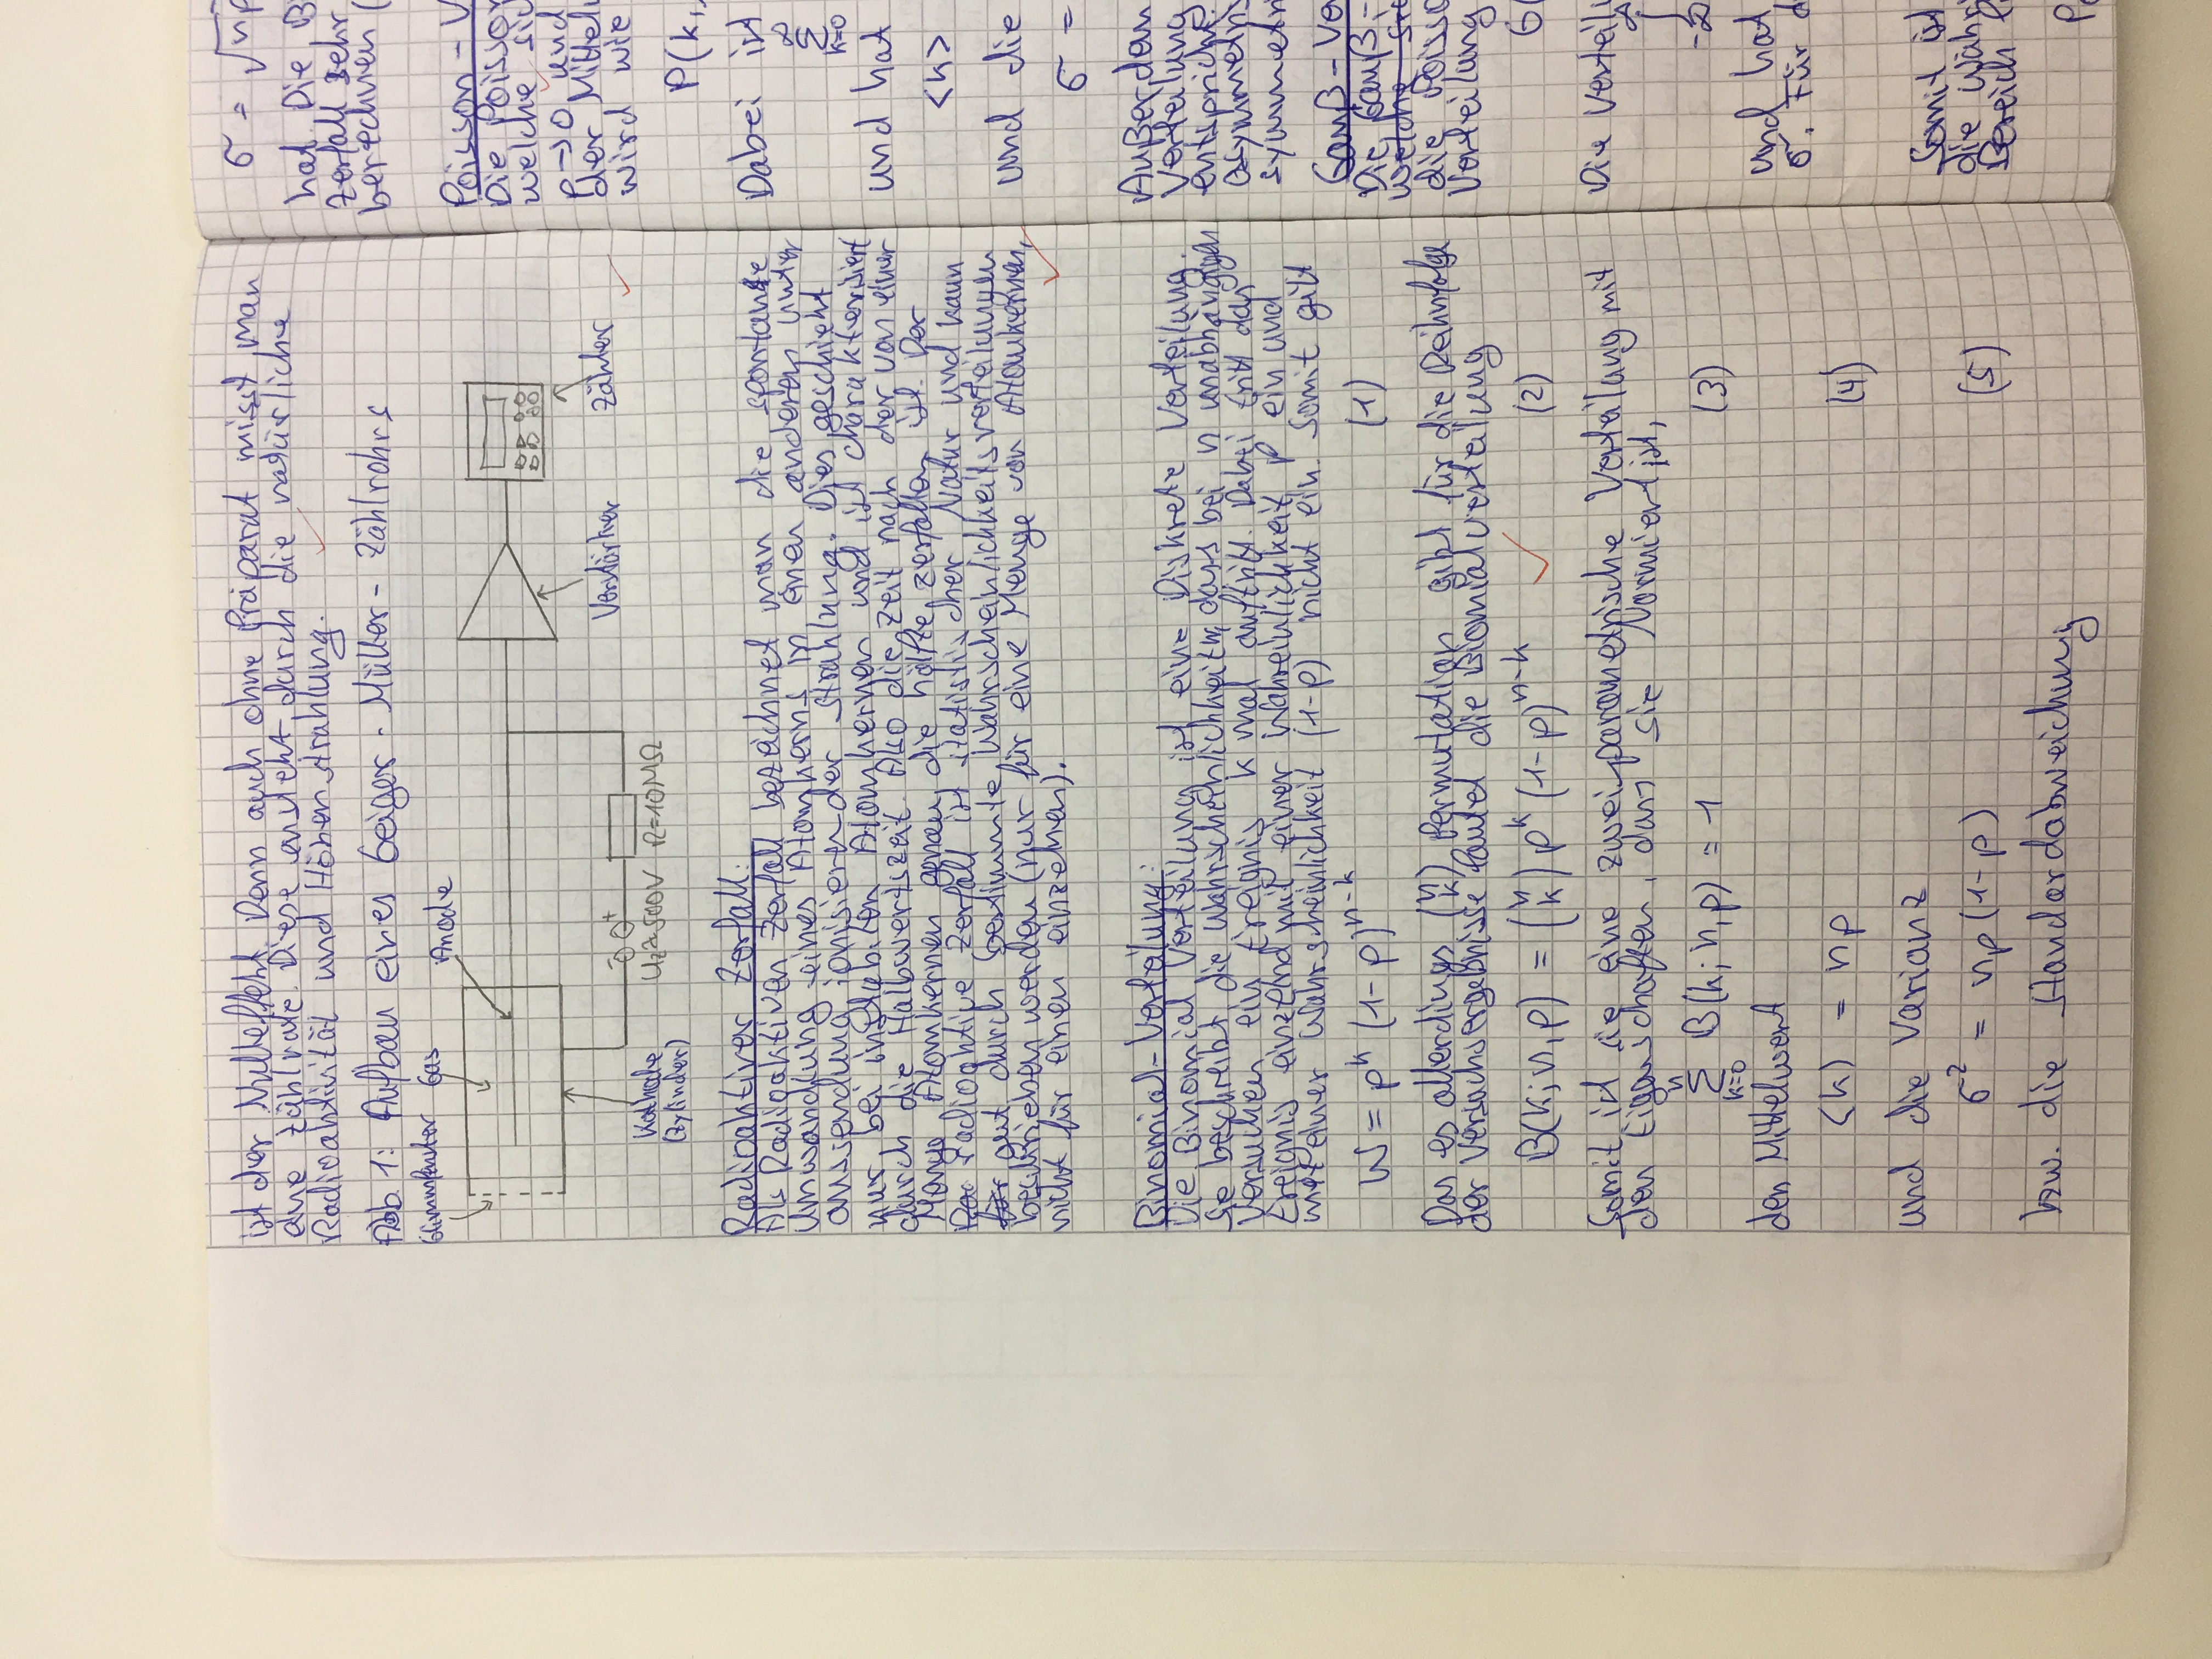 ist der Nulleffekt. Denn auch ohne Präparat misst man
eine Zählrate. Diese ensteht durch die natürliche
Radioaktivität und Höhenstrahlung.
Abb. 1: Aufbau eines Geiger-Müller-Zählrohrs
Glimmfenster Gas
Anode
Verstärker
Zähler
Kathode
(Zylinder)
Uz≈500V R=10MΩ
Radioaktiver Zerfall:
Als Radioaktiven Zerfall bezeichnet man die spontane
Umwandlung eines Atomkerns in einen anderen unter
aussendung ionisierender Strahlung. Dies geschieht
nur bei instabilen Atomkernen und ist charakterisiert
durch die Halbwertszeit. Also die Zeit nach der von einer
Menge Atomkernen genau die hälfte zerfallen ist. Der
radioaktive Zerfall ist statistischer Natur und kann
gut durch bestimmte Wahrscheinlichkeitsverteilungen
beschrieben werden (nur für eine Menge von Atomkernen,
nicht für einen einzelnen).
Binomial-Verteilung:
Die Binomial Verteilung ist eine Diskrete Verteilung.
Sie beschreibt die Wahrscheinlichkeit, dass bei n unabhängigen
Versuchen ein Ereignis k mal auftritt. Dabei tritt das
Ereignis einzelnd mit einer Wahreinlichkeit p ein und
mit einer Wahrscheinlichkeit (1-p) nicht ein. Somit gilt
W = p^k (1-p)^{n-k} (1)
Das es allerdings (n k) Permutation gibt für die Reihnfolge
der Versuchsergebnisse lautet die Biomialverteilung
B(k; n, p) = (n k) p^k (1-p)^{n-k} (2)
Somit ist sie eine zweiparametrische Verteilung mit
den Eigenschaften, dass sie Normiert ist,
n
Σ B(k; n, p) = 1 (3)
k=0
den Mittelwert
⟨k⟩ = np (4)
und die Varianz
σ² = np(1-p) (5)
bzw. die Standardabweichung
σ = √np
hat. Die B
Zerfall sehr
berechnen (
Poisson-V
Die Poisson
welche sic
p→0 und
der Mittelw
wird wie
P(k,
Dabei ist
∞
Σ
k=0
und hat
<k>
und die
σ =
Außerdem
Verteilung
entspricht.
asymmetris
symmetri
Gauß-Ve
Die Gauß-
die Poisso
Verteilung
G(
Die Verteilu
∞
∫
-∞
und hat
σ. Für d
Somit ist
die Wahr
Bereich
P